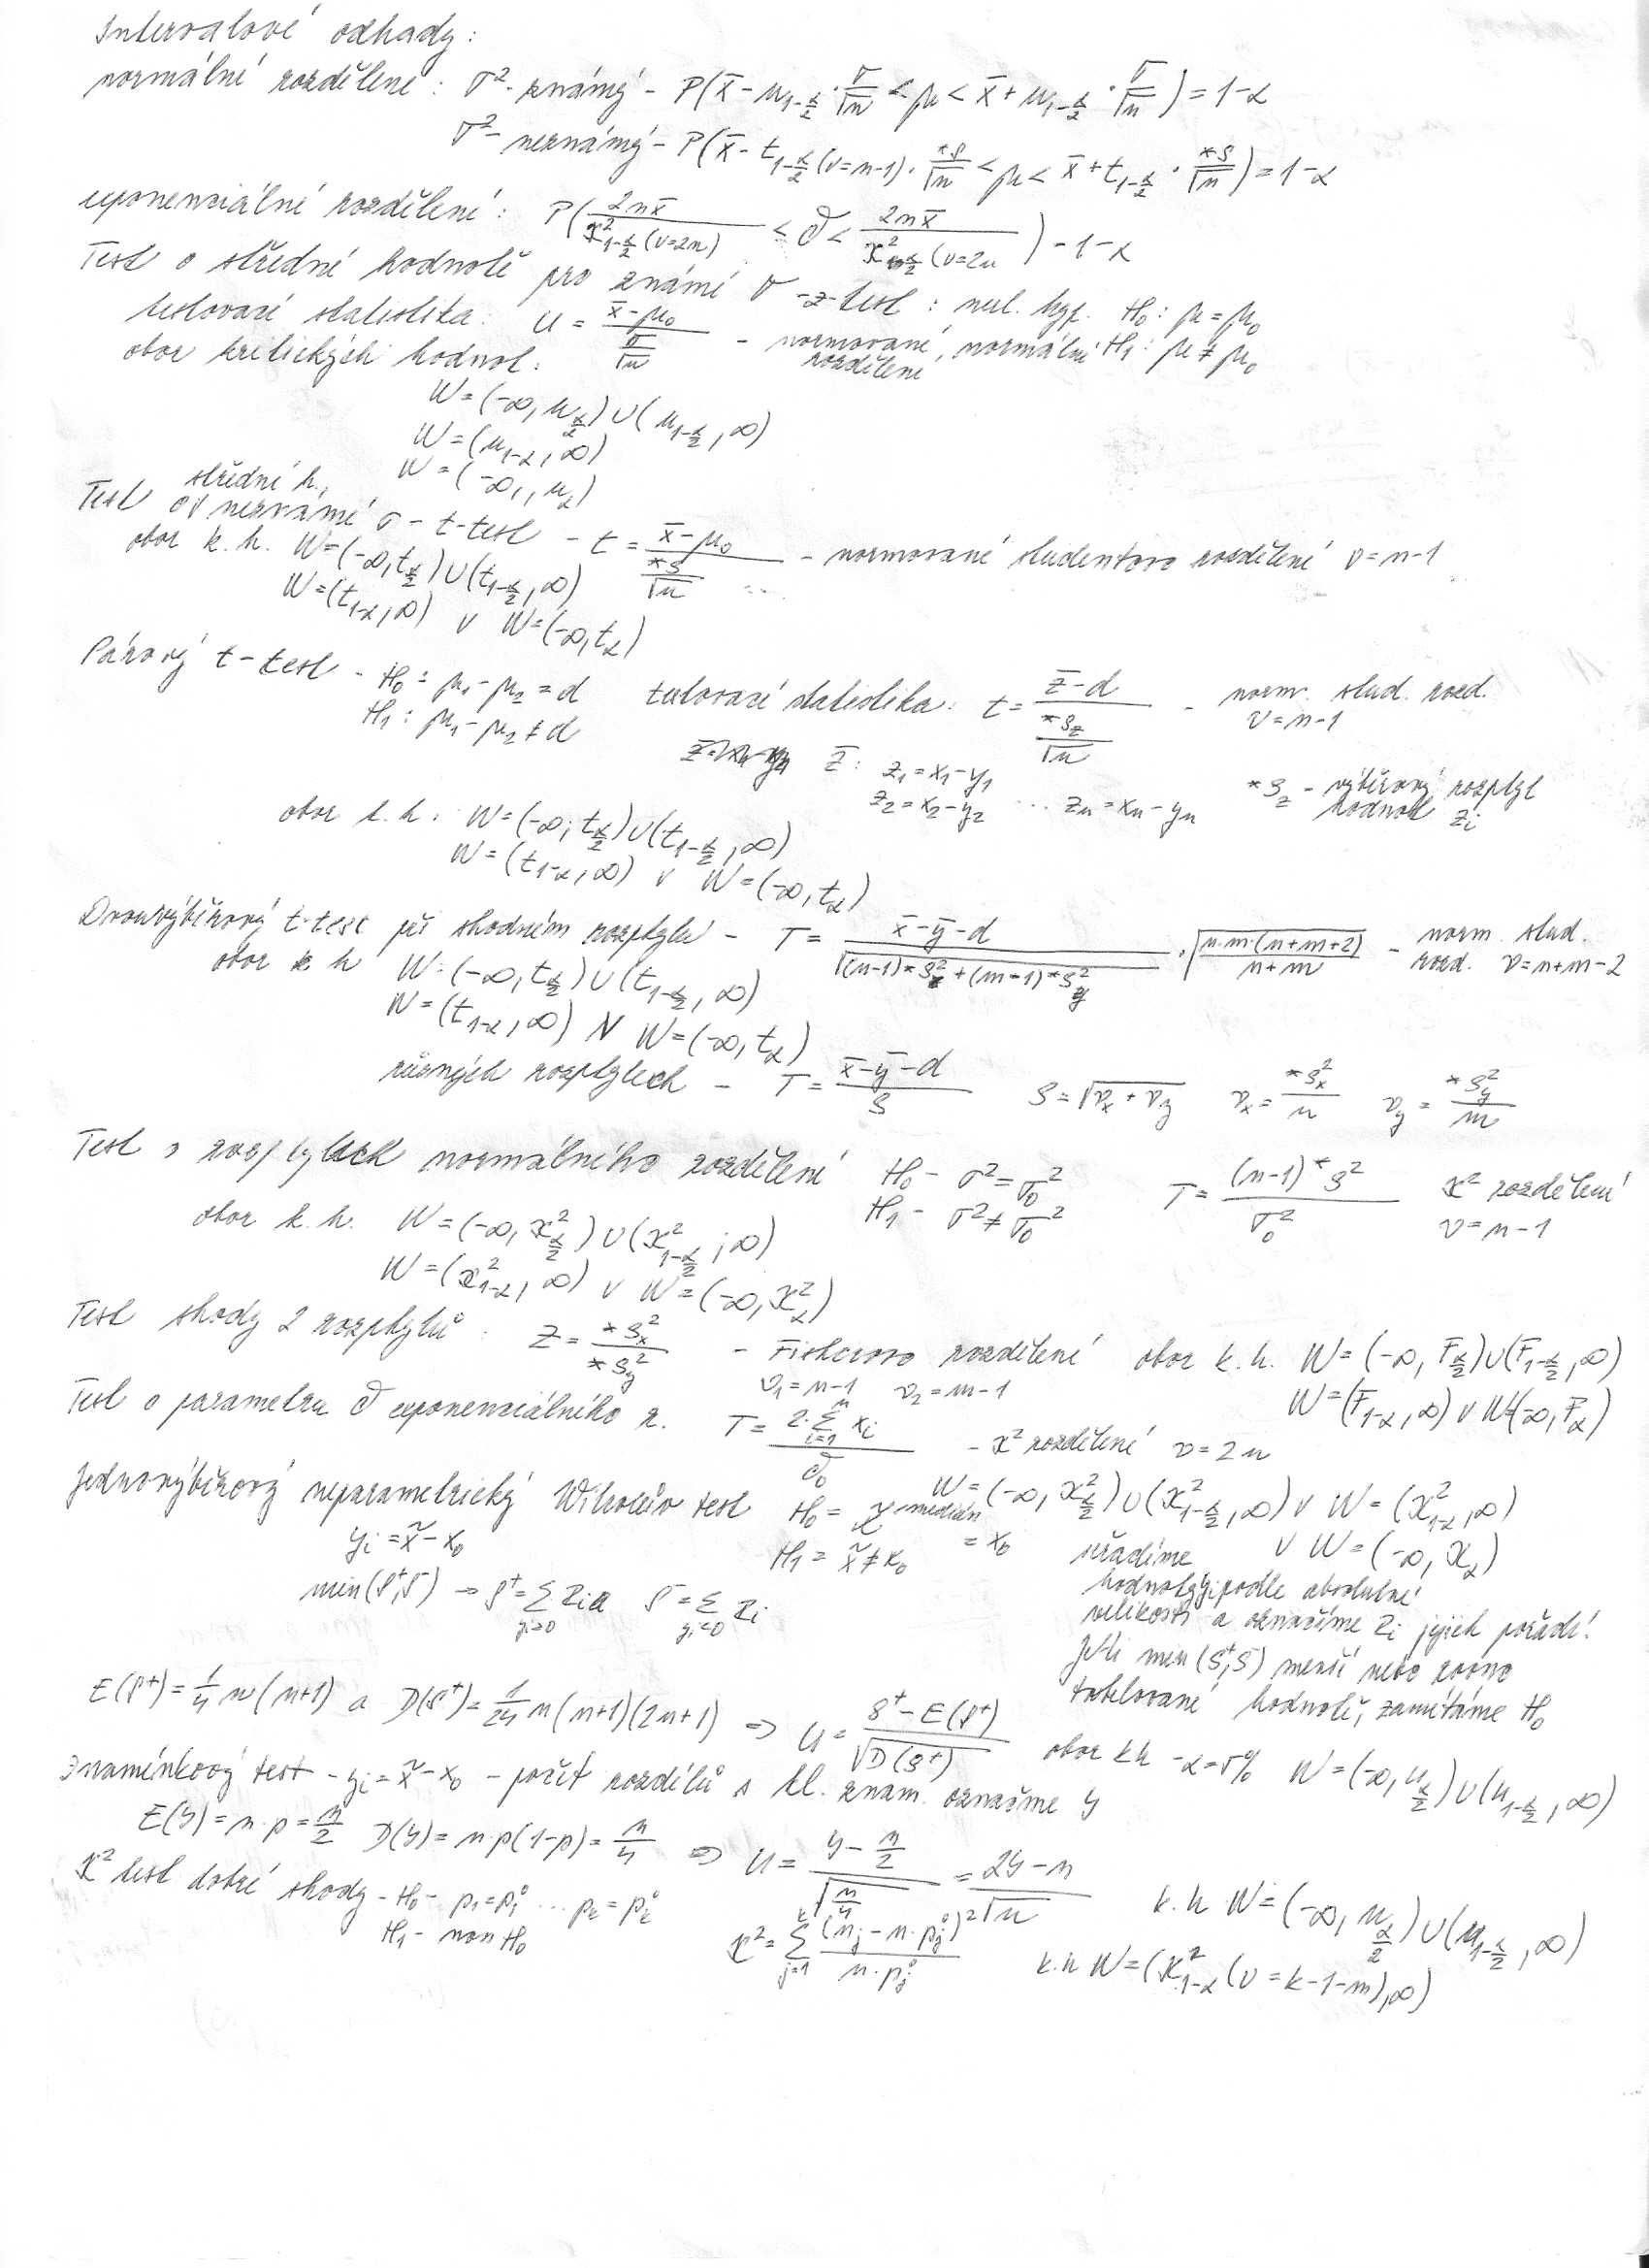 Intervalové odhady:
normální rozdělení: σ² - známý - P(x̄ - u_{1-α/2} · σ/√n < μ < x̄ + u_{1-α/2} · σ/√n) = 1-α
σ² - neznámý - P(x̄ - t_{1-α/2}(ν=n-1) · *s/√n < μ < x̄ + t_{1-α/2} · *s/√n) = 1-α
exponenciální rozdělení: P(2nx̄/χ²_{1-α/2}(ν=2n) < δ < 2nx̄/χ²_{α/2}(ν=2n) - 1-α
Test o střední hodnotě pro známé σ - z-test: nul. hyp. H₀: μ = μ₀
testovací statistika: u = (x̄-μ₀)/(σ/√n) - normované normální rozdělení, H₁: μ ≠ μ₀
obor kritických hodnot:
W = (-∞, u_{α/2}) ∪ (u_{1-α/2}, ∞)
W = (u_{1-α}, ∞)
W = (-∞, u_α)
Test o střední h. v neznámé σ - t-test - t = (x̄-μ₀)/(*s/√n) - normované studentovo rozdělení ν = n-1
obor k.h. W = (-∞, t_{α/2}) ∪ (t_{1-α/2}, ∞)
W = (t_{1-α}, ∞) v W = (-∞, t_α)
Párový t-test - H₀: μ₁ - μ₂ = d testovací statistika: t = (z̄-d)/(*s_z/√n) - norm. stud. rozd.
H₁: μ₁ - μ₂ ≠ d ν = n-1
z̄: z₁ = x₁ - y₁
z₂ = x₂ - y₂ ... zₙ = xₙ - yₙ *s_z - výběrový rozptyl hodnot z_i
obor k.h: W = (-∞; t_{α/2}) ∪ (t_{1-α/2}, ∞)
W = (t_{1-α}, ∞) v W = (-∞, t_α)
Dvouvýběrový t-test při shodném rozptylu - T = (x̄-ȳ-d)/√((n-1)*s_x² + (m-1)*s_y²) · √(n·m·(n+m+2)/(n+m)) - norm. stud. rozd. ν = n+m-2
obor k h W = (-∞, t_{α/2}) ∪ (t_{1-α/2}, ∞)
W = (t_{1-α}, ∞) v W = (-∞, t_α)
různých rozptylech - T = (x̄-ȳ-d)/S S = √(ν_x + ν_y) ν_x = *s_x²/n ν_y = *s_y²/m
Test o rozptylech normálního rozdělení H₀ - σ² = σ₀² T = (n-1)*s²/σ₀² χ² rozdělení
H₁ - σ² ≠ σ₀² ν = n-1
obor k.h. W = (-∞, χ²_{α/2}) ∪ (χ²_{1-α/2}; ∞)
W = (χ²_{1-α}, ∞) v W = (-∞, χ²_α)
Test shody 2 rozptylů: Z = *s_x²/*s_y² - Fisherovo rozdělení obor k.h. W = (-∞, F_{α/2}) ∪ (F_{1-α/2}, ∞)
ν₁ = n-1 ν₂ = m-1 W = (F_{1-α}, ∞) v W = (-∞, F_α)
Test o parametru δ exponenciálního r. T = 2·∑_{i=1}^n x_i/δ₀ - χ² rozdělení ν = 2n
W = (-∞, χ²_{α/2}) ∪ (χ²_{1-α/2}, ∞) v W = (χ²_{1-α}, ∞)
v W = (-∞, χ_α)
Jednovýběrový neparametrický Wilcoxův test H₀ = x̃ medián = x₀
y_i = x̃ - x₀ H₁ = x̃ ≠ x₀
min(S⁺,S⁻) → S⁺ = ∑_{y_i≥0} R_i a S⁻ = ∑_{y_i<0} R_i
seřadíme
hodnoty y_i podle absolutní
velikosti a označíme R_i jejich pořadí.
Je-li min(S⁺,S⁻) menší nebo rovno
tabelované hodnotě, zamítáme H₀
E(S⁺) = 1/4 n(n+1) a D(S⁺) = 1/24 n(n+1)(2n+1) ⇒ U = (S⁺ - E(S⁺))/√D(S⁺) obor kh - α=5% W = (-∞, u_{α/2}) ∪ (u_{1-α/2}, ∞)
Znaménkový test - y_i = x̃ - x₀ - počet rozdílů s kl. znam. označme Y
E(Y) = n·p = n/2 D(Y) = n·p(1-p) = n/4 ⇒ U = (Y - n/2)/√(n/4) = (2Y-n)/√n k.h W = (-∞, u_{α/2}) ∪ (u_{1-α/2}, ∞)
χ² test dobré shody - H₀ - p₁ = p₁⁰ ... p_k = p_k⁰
H₁ - non H₀ χ² = ∑_{j=1}^k (n_j - n·p_j⁰)²/(n·p_j⁰) k.h W = (χ²_{1-α}(ν = k-1-m), ∞)